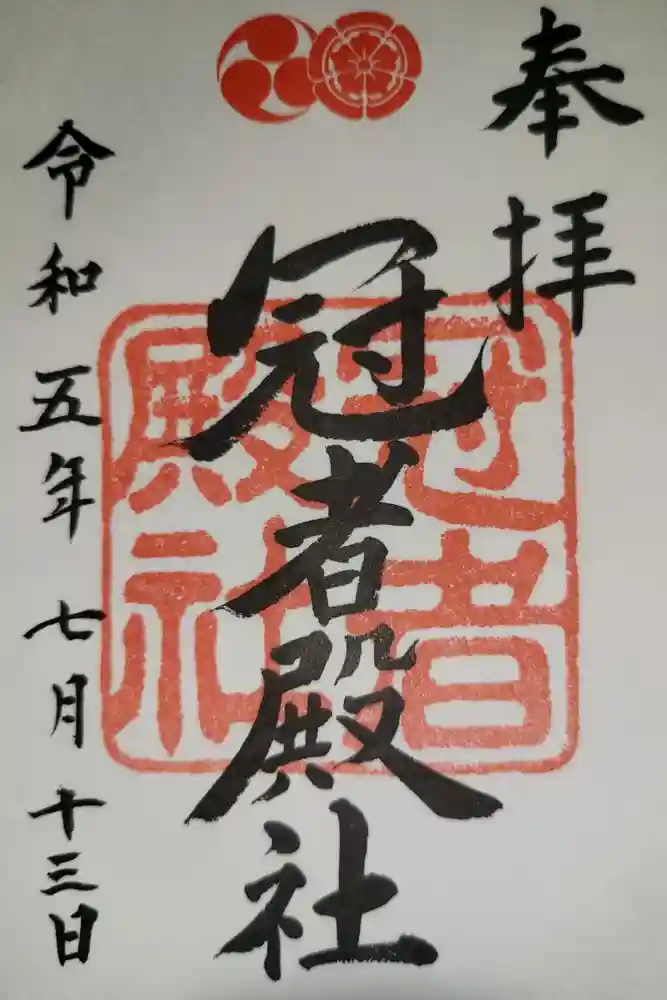 奉拝
冠者殿社
冠者殿社
令和五年七月十三日